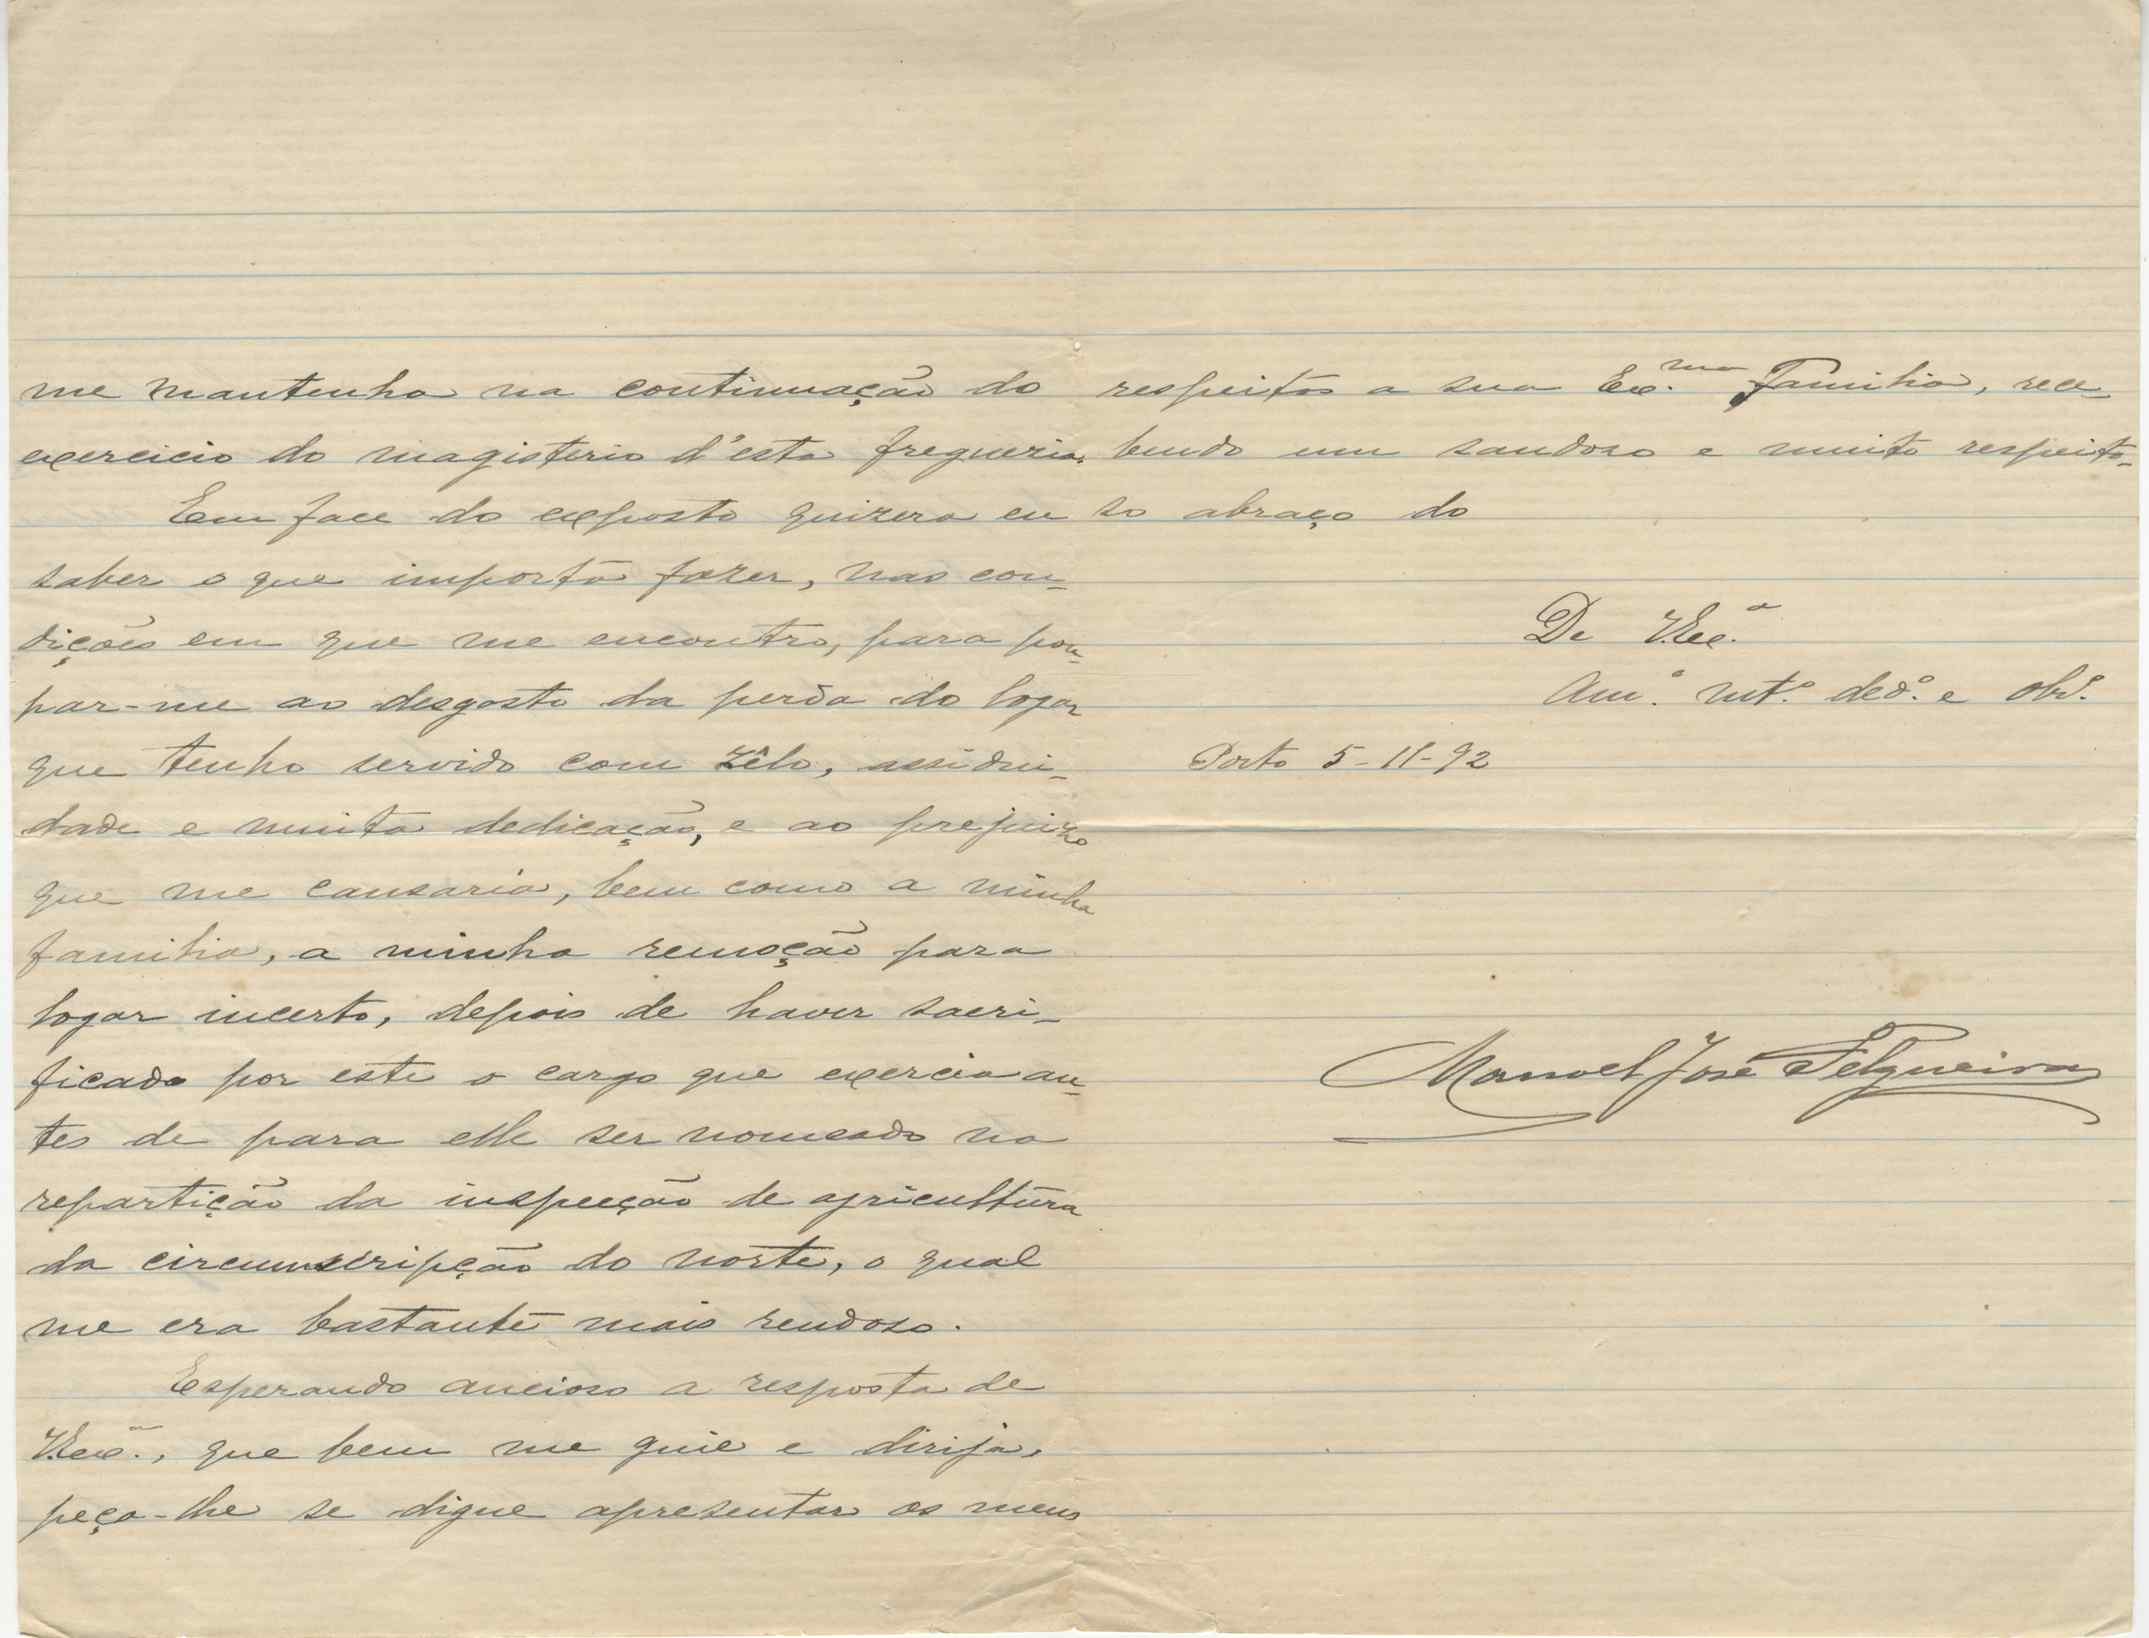 me mantenha na continuação do
exercicio do magisterio d'esta freguezia.
Em face do exposto quizera eu
saber o que importa fazer, nas con-
dições em que me encontro, para pou-
par-me ao desgosto da perda do logar
que tenho servido com zêlo, assidui-
dade e muita dedicação, e ao prejuizo
que me causaria, bem como a minha
familia, a minha remoção para
logar incerto, depois de haver sacri-
ficado por este o cargo que exercia an-
tes de para elle ser nomeado na
repartição da inspecção de agricultura
da circumscripção do norte, o qual
me era bastante mais rendoso.
Esperando ancioso a resposta de
V.Exª., que bem me guie e dirija,
peço-lhe se digne apresentar os meus
respeitos a sua Ex.ma Familia, rece-
bendo um saudoso e muito respeito-
so abraço do
De V.Exc.ª
Am.º mt.º ded.º e obr.º
Porto 5-11-92
Manoel José Felgueiras